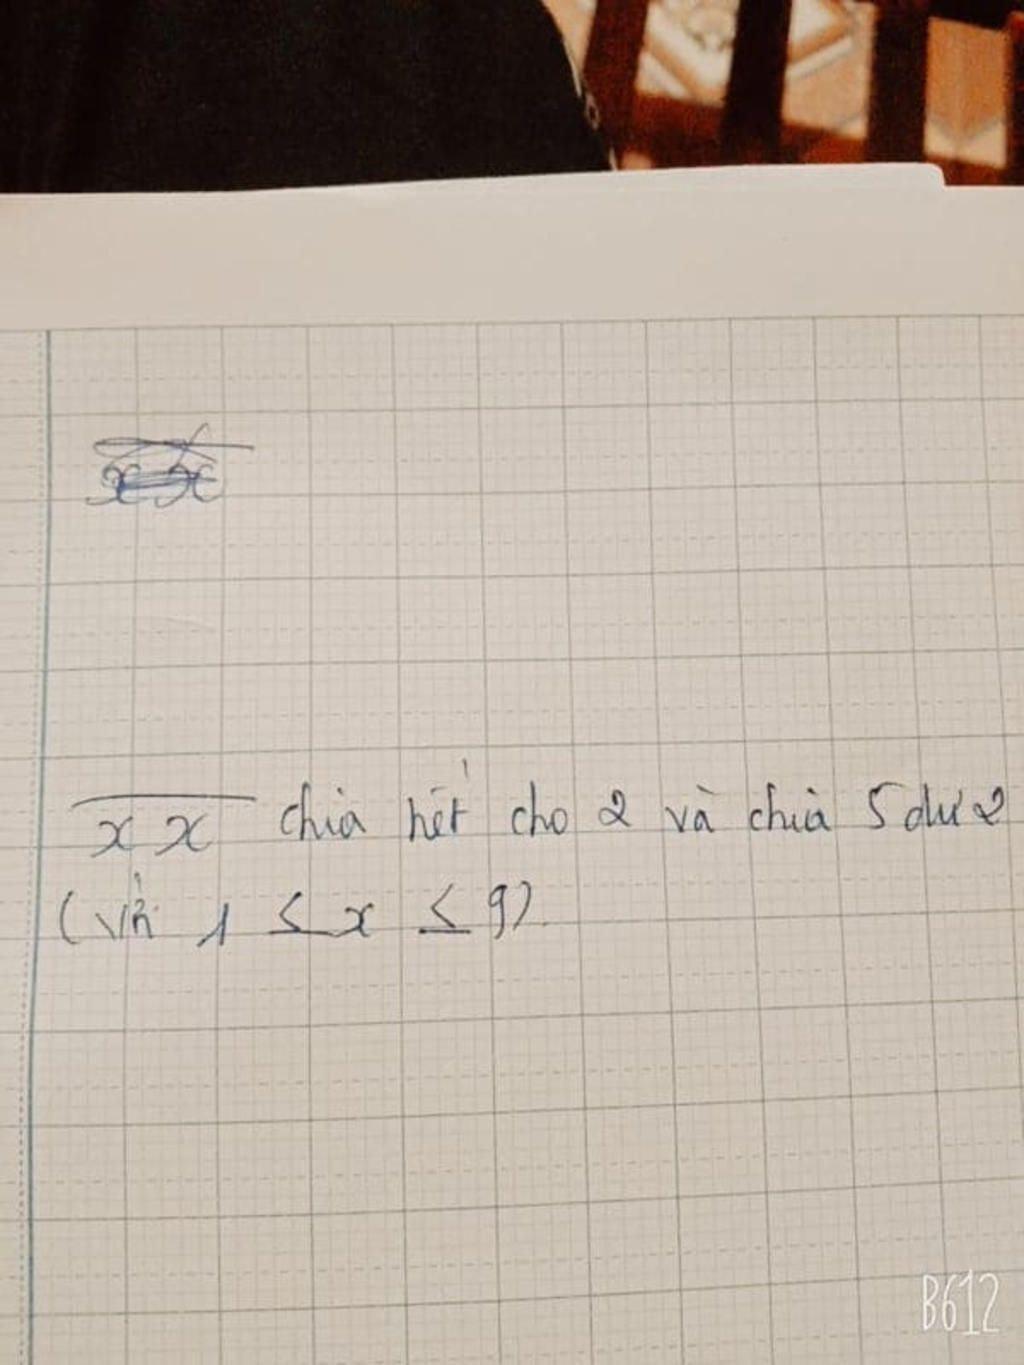 x x chia hết cho 2 và chia 5 dư 2
(với 1 ≤ x ≤ 9).
B612